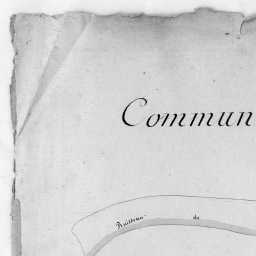 Commun
Ruisseau de